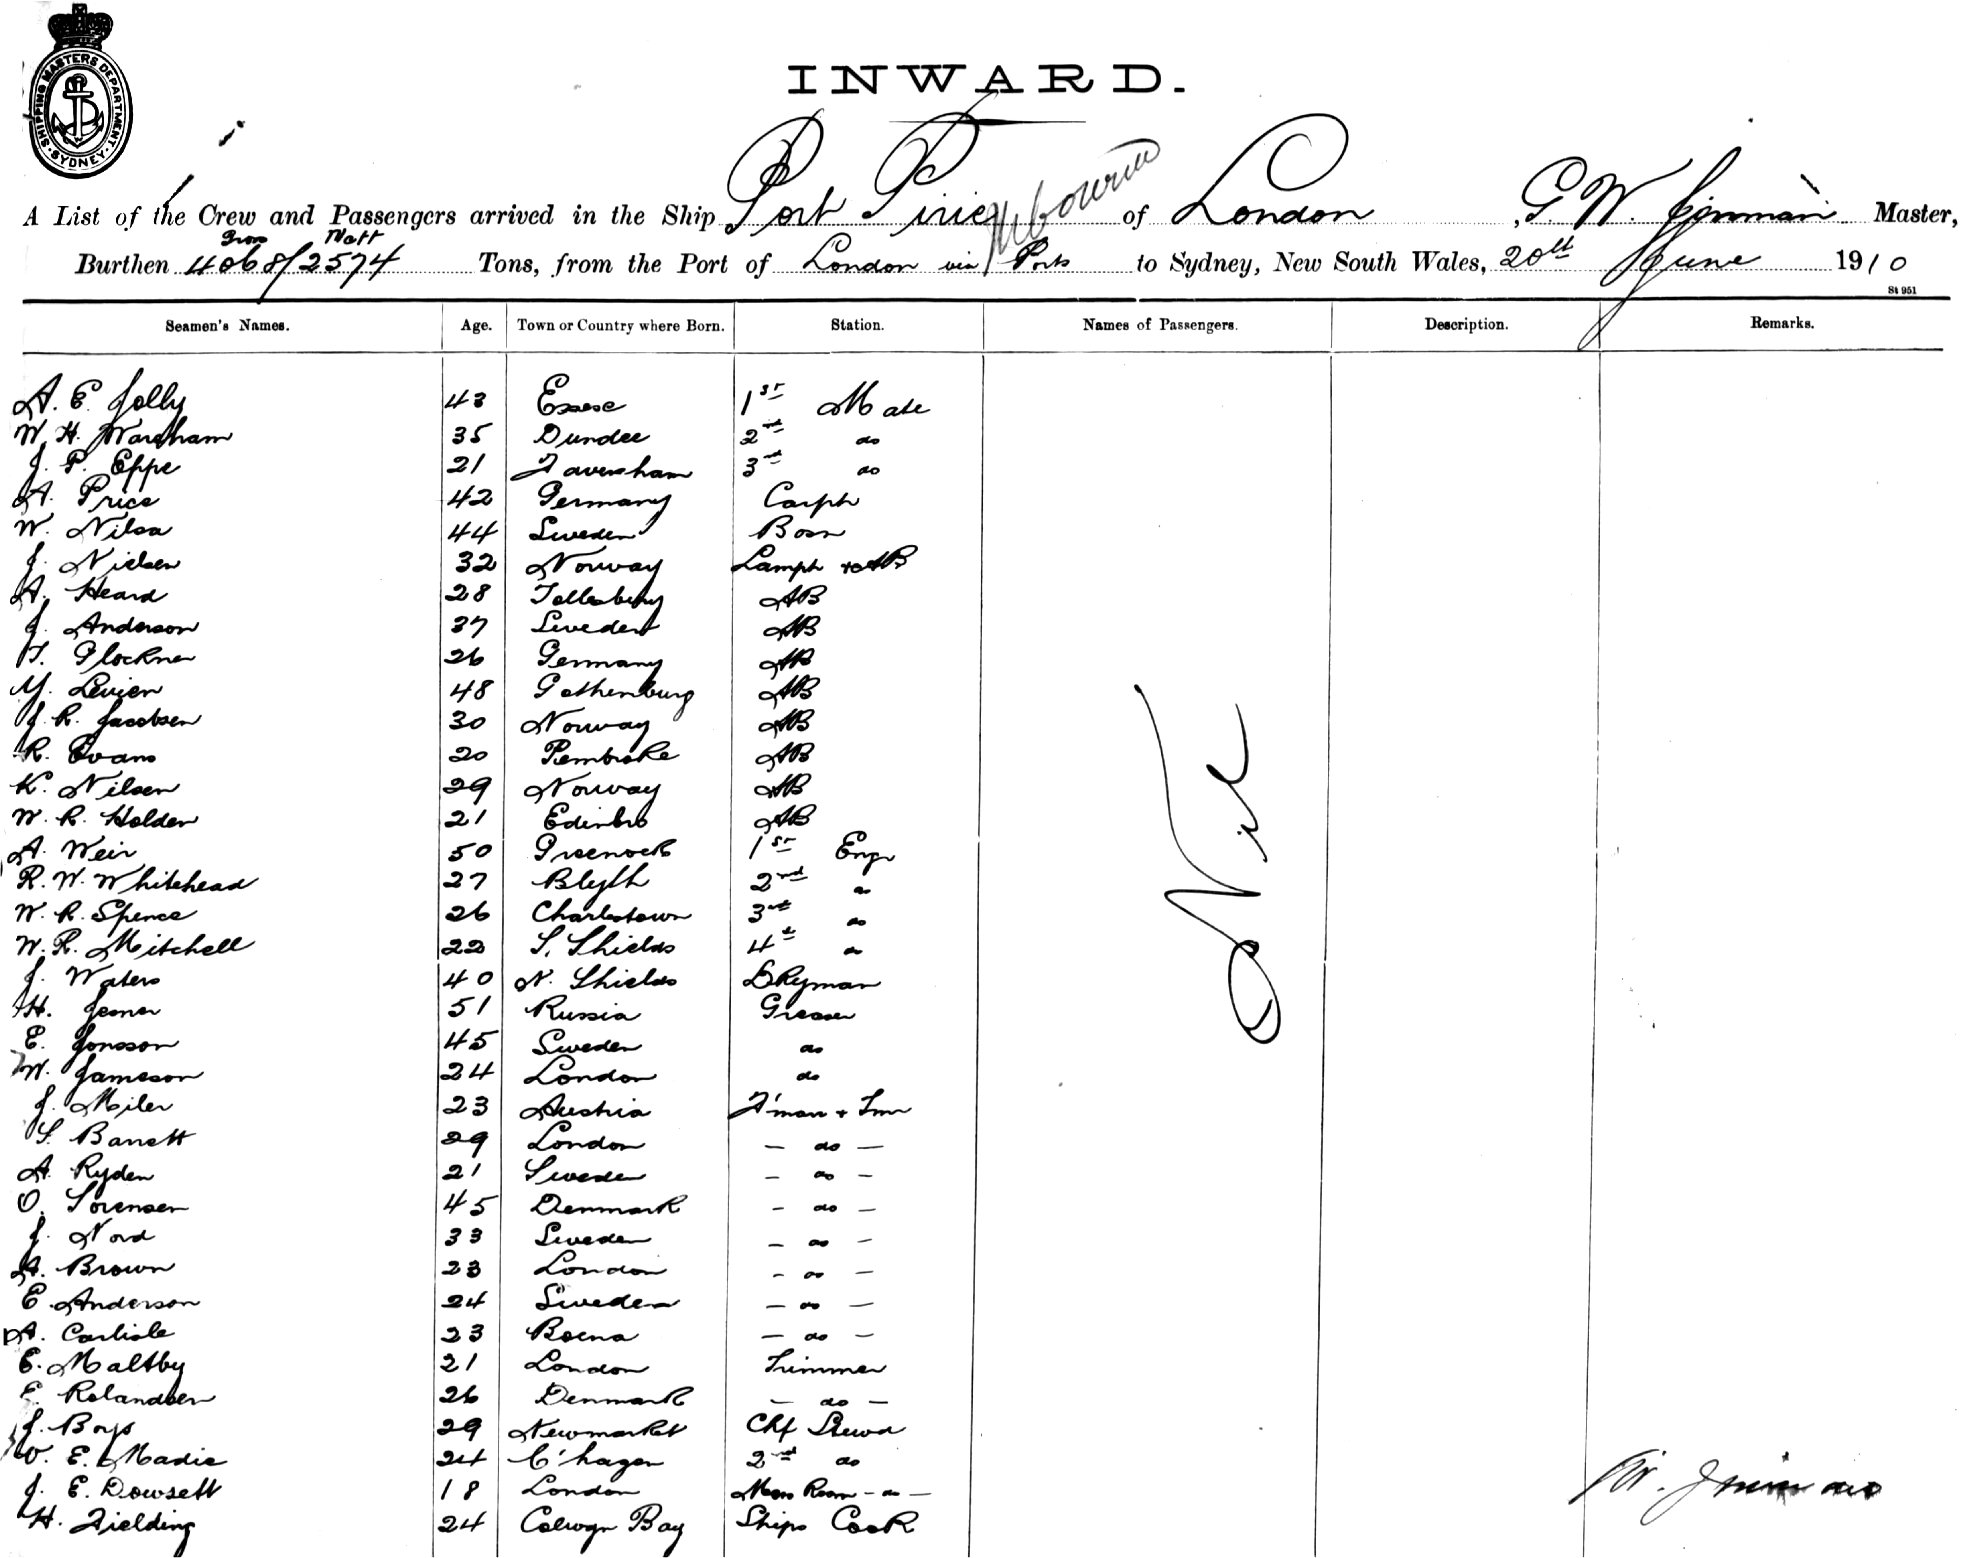 SHIPPING MASTERS DEPARTMENT · SYDNEY ·
INWARD.
A List of the Crew and Passengers arrived in the Ship Port Pirie of London, G. W. Jinman Master,
Gross Nett
Burthen 4068/2574 Tons, from the Port of London via Ports to Sydney, New South Wales, 20th June 1910
St 951
Seamen's Names. Age. Town or Country where Born. Station. Names of Passengers. Description. Remarks.
A. E. Jolly 43 Essex 1st Mate
W. H. Wareham 35 Dundee 2nd do
J. P. Epps 21 Faversham 3rd do
A. Price 42 Germany Carptr
W. Nilsa 44 Sweden Bosn
J. Nielsen 32 Norway Lamptr & AB
A. Heard 28 Tollesbury AB
J. Anderson 37 Sweden AB
T. Glockner 26 Germany AB
M. Levien 48 Gothenburg AB
J. R. Jacobsen 30 Norway AB
R. Evans 20 Pembroke AB
K. Nilsen 29 Norway AB
W. R. Holden 21 Edinbro AB
A. Weir 50 Greenock 1st Engr
R. W. Whitehead 27 Blyth 2nd do
W. R. Spence 26 Charlestown 3rd do
W. R. Mitchell 22 S. Shields 4th do
J. Waters 40 N. Shields Dkyman
H. Jesner 51 Russia Greaser
E. Jonsson 45 Sweden do
W. Jameson 24 London do
J. Miler 23 Austria F'man & Tmr
S. Barrett 29 London — do —
A. Ryden 21 Sweden — do —
O. Sorensen 45 Denmark — do —
J. Nord 33 Sweden — do —
A. Brown 23 London — do —
E. Anderson 24 Sweden — do —
A. Carlisle 23 — do —
E. Maltby 21 London Trimmer
E. Rolandsen 26 Denmark — do —
J. Boys 29 Newmarket Chf Stewd
V. E. Madie 24 C'hagen 2nd do
J. E. Dowsett 18 London Mess Room — do —
H. Fielding 24 Colwyn Bay Ships Cook
Nil